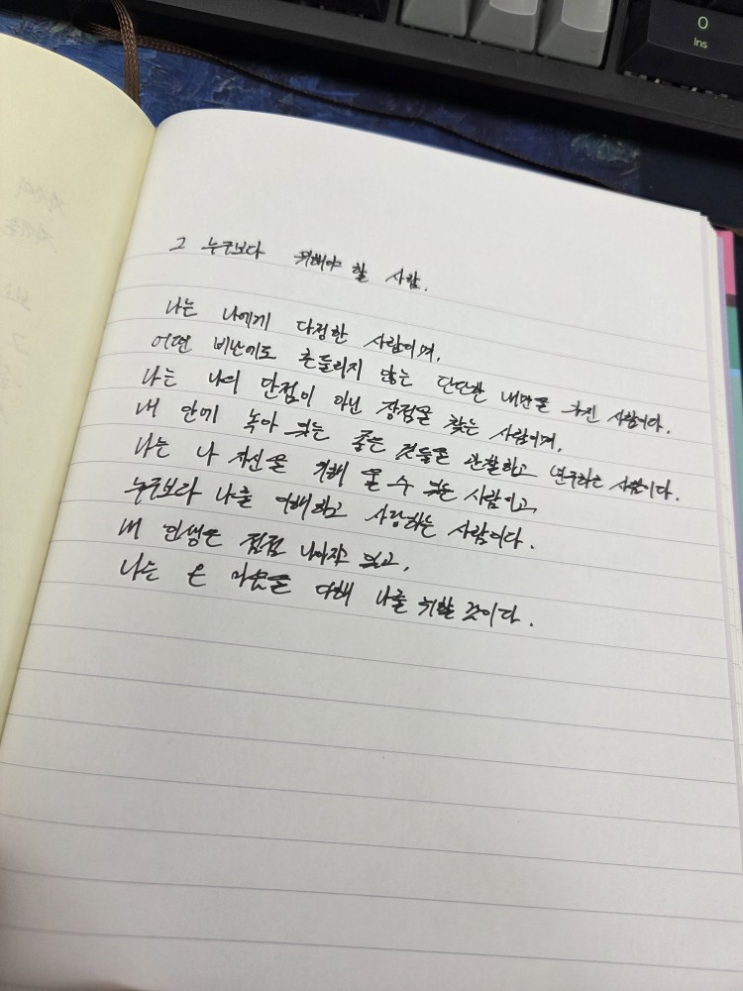 0
Ins
그 누구보다 위해야 할 사람.
나는 나에게 다정한 사람이며,
어떤 비난에도 흔들리지 않는 단단한 내면을 가진 사람이다.
나는 나의 단점이 아닌 장점을 찾는 사람이며,
내 안에 녹아 있는 좋은 것들을 관찰하고 연구하는 사람이다.
나는 나 자신을 위해 울 수 있는 사람이고,
누구보다 나를 이해하고 사랑하는 사람이다.
내 인생은 점점 나아지고 있고,
나는 온 마음을 다해 나를 위할 것이다.